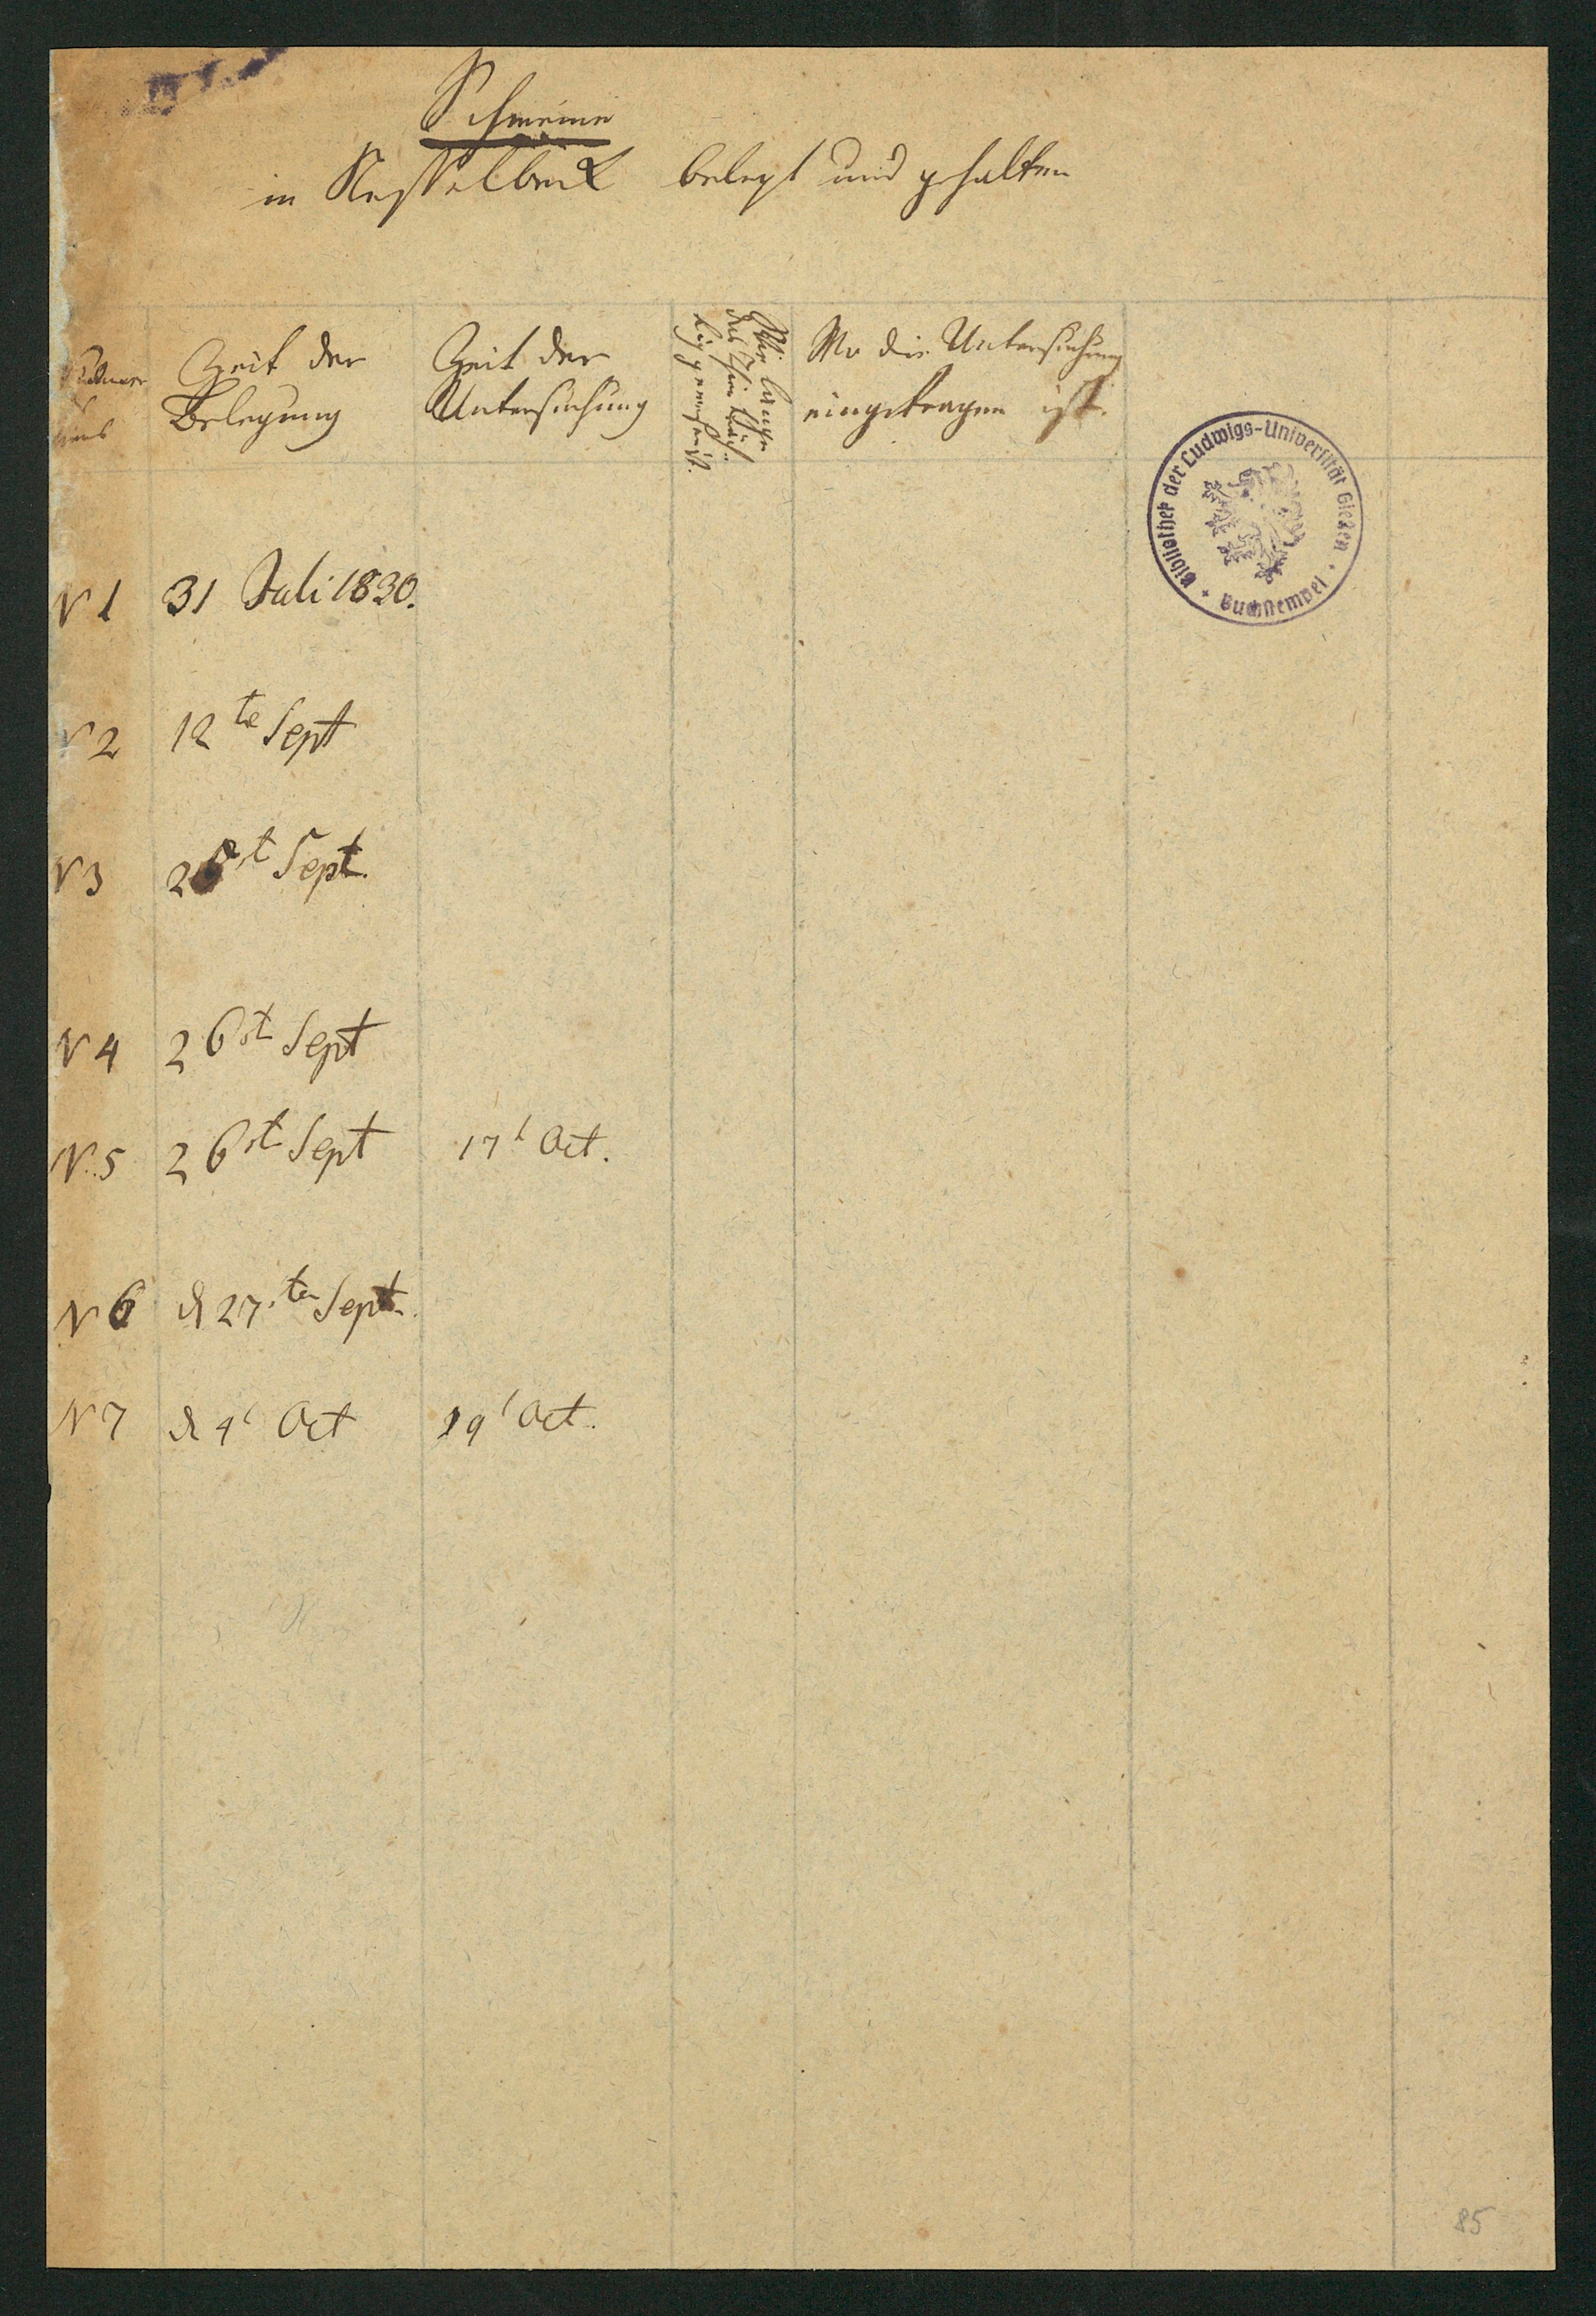 Schweine
in Nesselbeck belegt und gehalten
Nummer
Zeit der
Belegung
Zeit der
Untersuchung
Wie lange
das Thier träch-
tig gewesen ist.
Wo die Untersuchung
eingetragen ist.
Bibliothek der Ludwigs-Universität Gießen
Buchstempel
N 1 31 Juli 1830.
N 2 12te Sept
N 3 26t Sept.
N 4 26st Sept
N. 5 26st Sept 17t Oct.
N 6 d 27.ten Sept.
N 7 d 4t Oct 19t Oct.
85